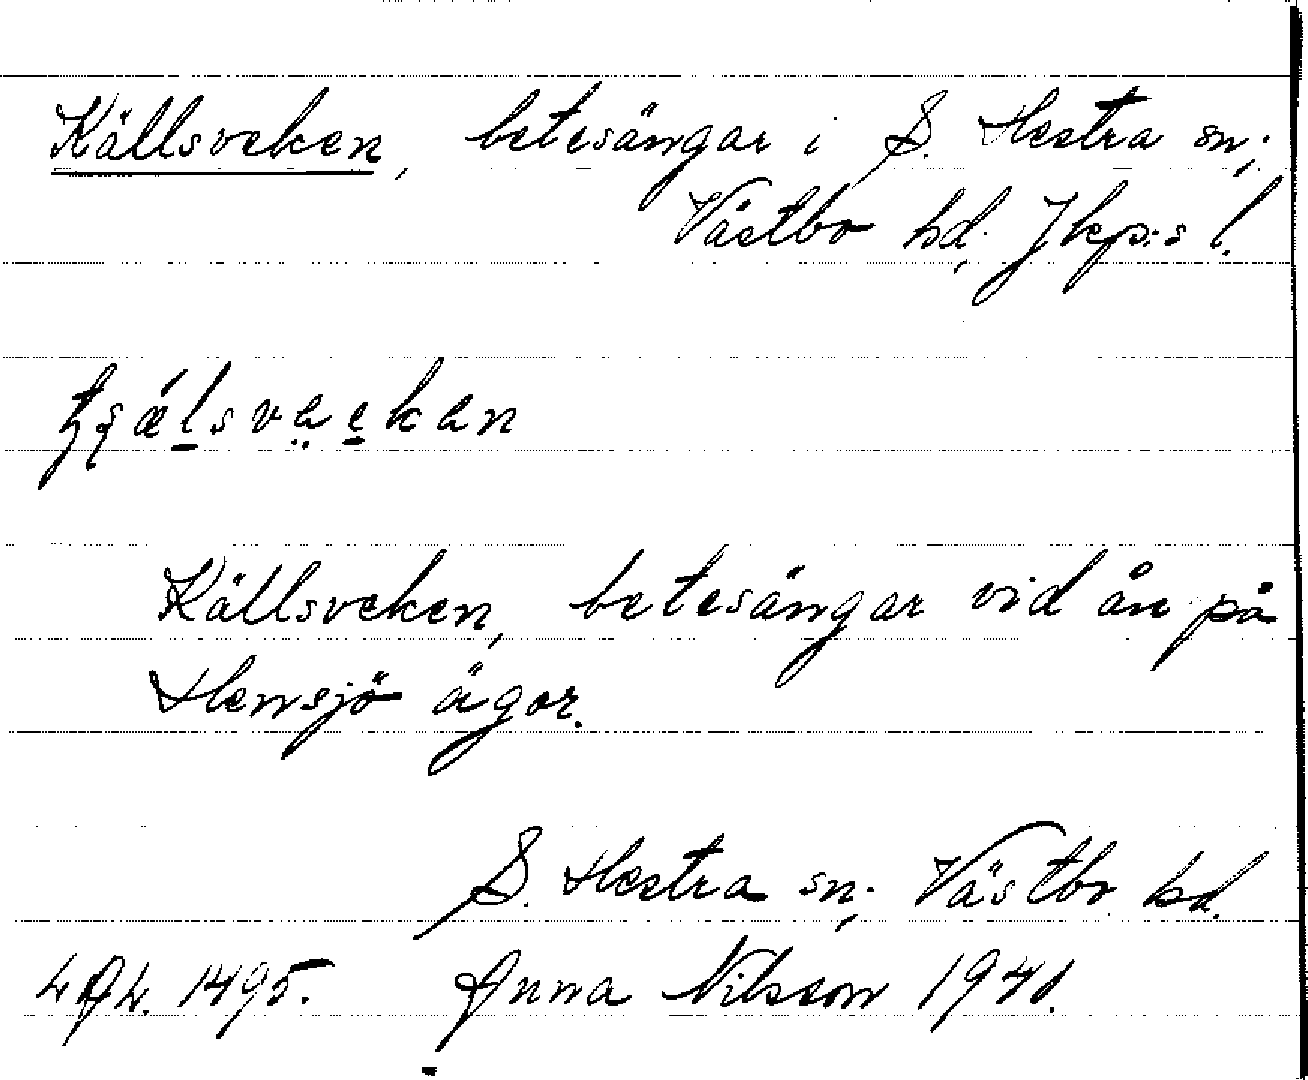 Källsveken, betesängar i S. Hestra sn;
Västbo hd. Jkp:s l.
Källsveken, betesängar vid ån på
Hensjö ägor.
S. Hestra sn; Västbo hd.
1495. Anna Nilsson 1941.